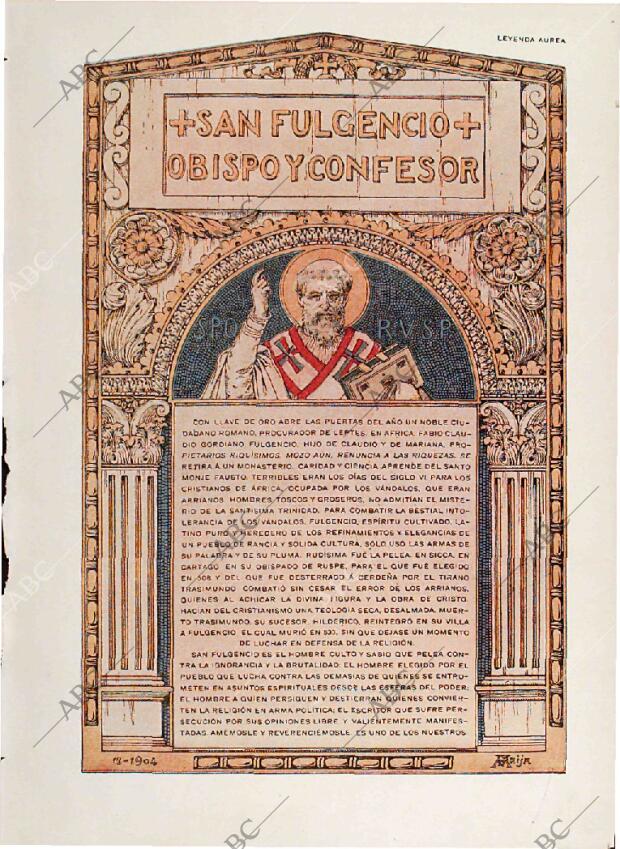 LEYENDA AUREA
+SAN FULGENCIO+
OBISPO Y CONFESOR
SPO RVSP
CON LLAVE DE ORO ABRE LAS PUERTAS DEL AÑO UN NOBLE CIU-
DADANO ROMANO, PROCURADOR DE LEPTES, EN AFRICA. FABIO CLAU-
DIO GORDIANO FULGENCIO, HIJO DE CLAUDIO Y DE MARIANA, PRO-
PIETARIOS RIQUÍSIMOS, MOZO AUN, RENUNCIA A LAS RIQUEZAS, SE
RETIRA Á UN MONASTERIO. CARIDAD Y CIENCIA APRENDE DEL SANTO
MONJE FAUSTO. TERRIBLES ERAN LOS DÍAS DEL SIGLO VI PARA LOS
CRISTIANOS DE ÁFRICA, OCUPADA POR LOS VÁNDALOS, QUE ERAN
ARRIANOS. HOMBRES TOSCOS Y GROSEROS, NO ADMITÍAN EL MISTE-
RIO DE LA SANTÍSIMA TRINIDAD. PARA COMBATIR LA BESTIAL INTO-
LERANCIA DE LOS VÁNDALOS, FULGENCIO, ESPÍRITU CULTIVADO, LA-
TINO PURO, HEREDERO DE LOS REFINAMIENTOS Y ELEGANCIAS DE
UN PUEBLO DE RANCIA Y SOLIDA CULTURA, SOLO USÓ LAS ARMAS DE
SU PALABRA Y DE SU PLUMA. RUDÍSIMA FUÉ LA PELEA. EN SICCA, EN
CARTAGO EN SU OBISPADO DE RUSPE, PARA EL QUE FUÉ ELEGIDO
EN 508 Y DEL QUE FUÉ DESTERRADO Á CERDEÑA POR EL TIRANO
TRASIMUNDO COMBATIÓ SIN CESAR EL ERROR DE LOS ARRIANOS,
QUIENES AL ACHICAR LA DIVINA FIGURA Y LA OBRA DE CRISTO,
HACÍAN DEL CRISTIANISMO UNA TEOLOGÍA SECA, DESALMADA. MUER-
TO TRASIMUNDO, SU SUCESOR, HILDERICO, REINTEGRÓ EN SU VILLA
A FULGENCIO, EL CUAL MURIÓ EN 533, SIN QUE DEJASE UN MOMENTO
DE LUCHAR EN DEFENSA DE LA RELIGIÓN.
SAN FULGENCIO ES EL HOMBRE CULTO Y SABIO QUE PELEA CON-
TRA LA IGNORANCIA Y LA BRUTALIDAD; EL HOMBRE ELEGIDO POR EL
PUEBLO QUE LUCHA CONTRA LAS DEMASÍAS DE QUIENES SE ENTRO-
METEN EN ASUNTOS ESPIRITUALES DESDE LAS ESFERAS DEL PODER;
EL HOMBRE A QUIEN PERSIGUEN Y DESTIERRAN QUIENES CONVIER-
TEN LA RELIGIÓN EN ARMA POLÍTICA; EL ESCRITOR QUE SUFRE PER-
SECUCIÓN POR SUS OPINIONES LIBRE Y VALIENTEMENTE MANIFES-
TADAS. AMÉMOSLE Y REVERENCIÉMOSLE. ES UNO DE LOS NUESTROS
1904
ABC